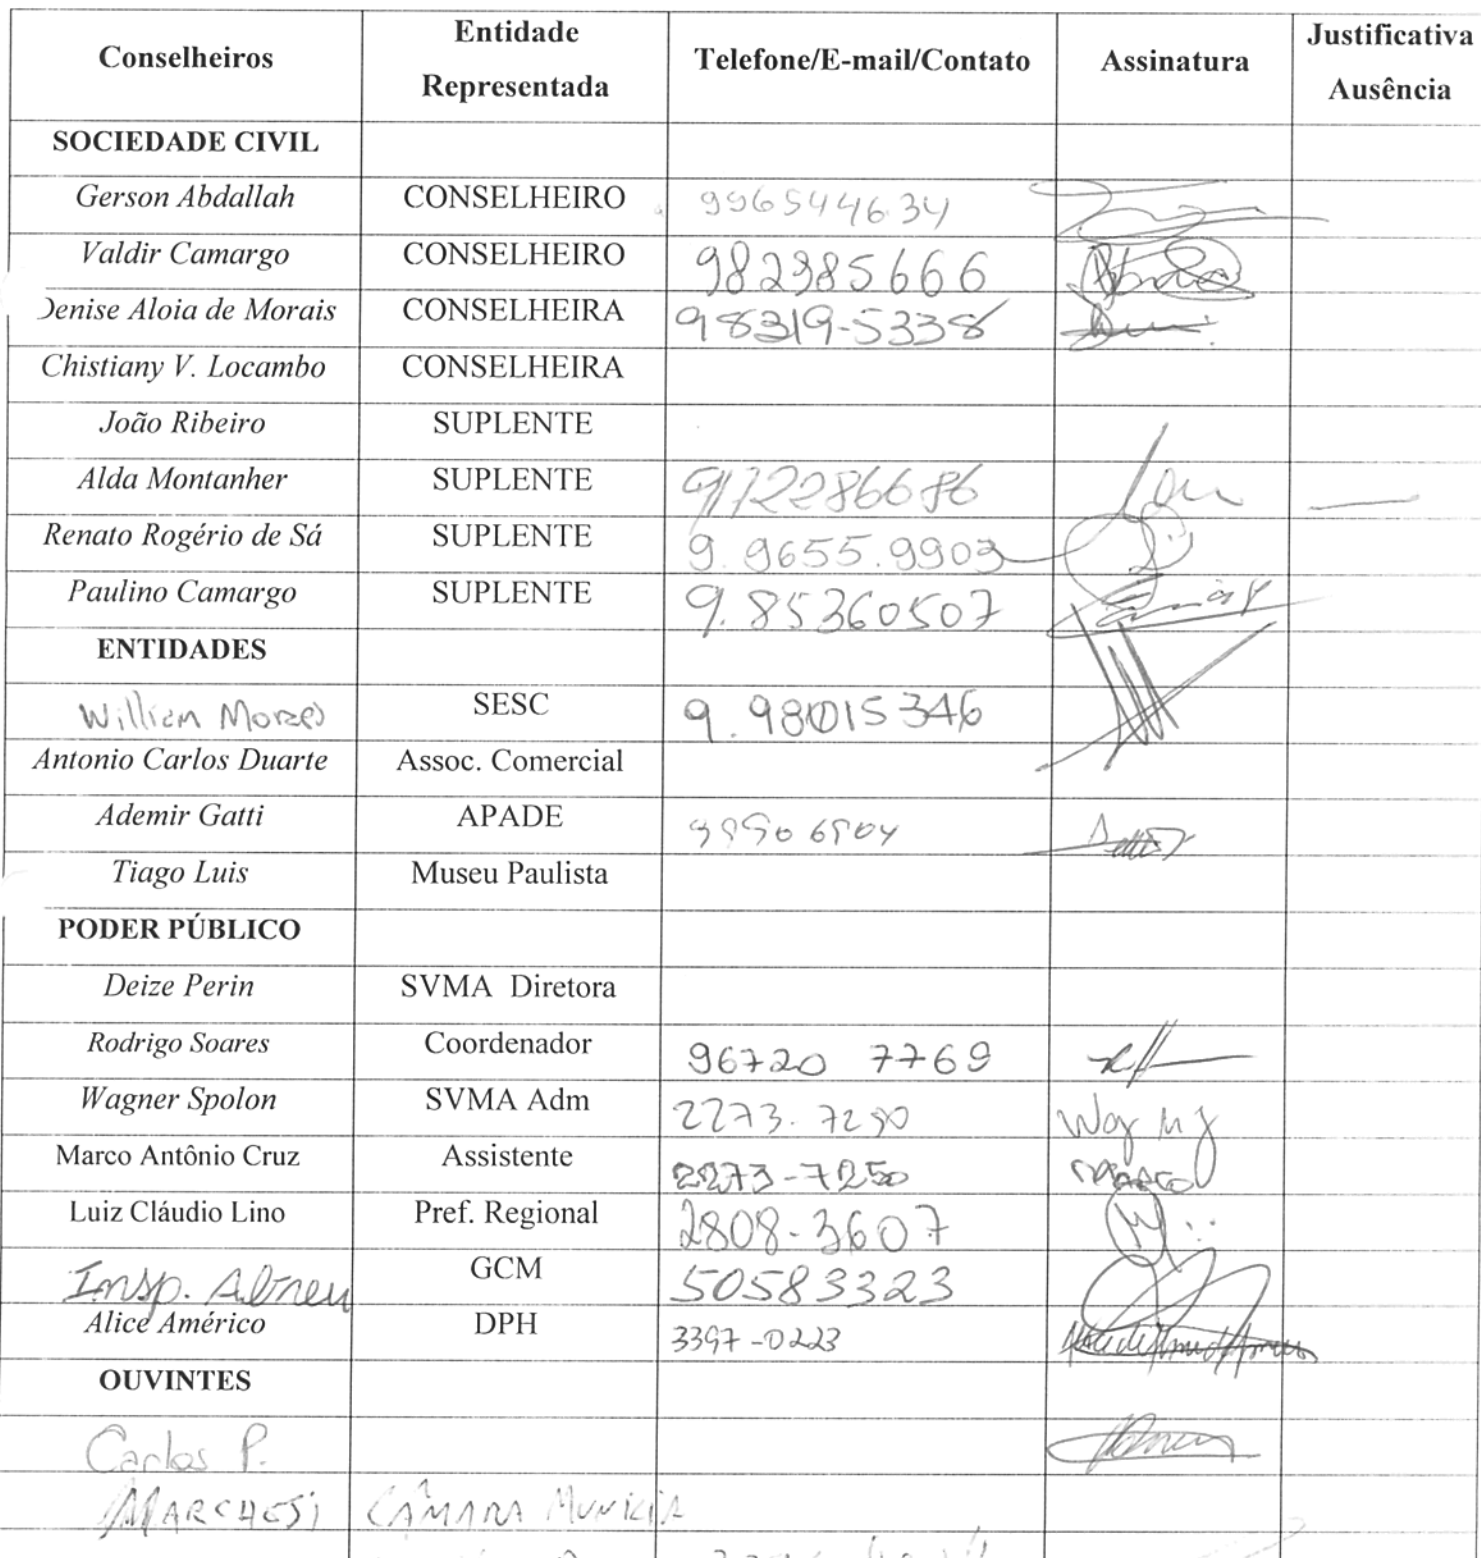 Conselheiros Entidade Representada Telefone/E-mail/Contato Assinatura Justificativa Ausência
SOCIEDADE CIVIL
Gerson Abdallah CONSELHEIRO 996544634
Valdir Camargo CONSELHEIRO 982385666
Denise Aloia de Morais CONSELHEIRA 98319-5338
Chistiany V. Locambo CONSELHEIRA
João Ribeiro SUPLENTE
Alda Montanher SUPLENTE
Renato Rogério de Sá SUPLENTE 9.9655.9903
Paulino Camargo SUPLENTE 9.85360507
ENTIDADES
William Moraes SESC 9.98015346
Antonio Carlos Duarte Assoc. Comercial
Ademir Gatti APADE
Tiago Luis Museu Paulista
PODER PÚBLICO
Deize Perin SVMA Diretora
Rodrigo Soares Coordenador 96720 7769
Wagner Spolon SVMA Adm 2273-7250
Marco Antônio Cruz Assistente 2273-7250 MARCO
Luiz Cláudio Lino Pref. Regional 2808-3607
Insp. Abreu GCM 50583323
Alice Américo DPH 3397-0223
OUVINTES
Carlos P.
MARCHESI CÂMARA